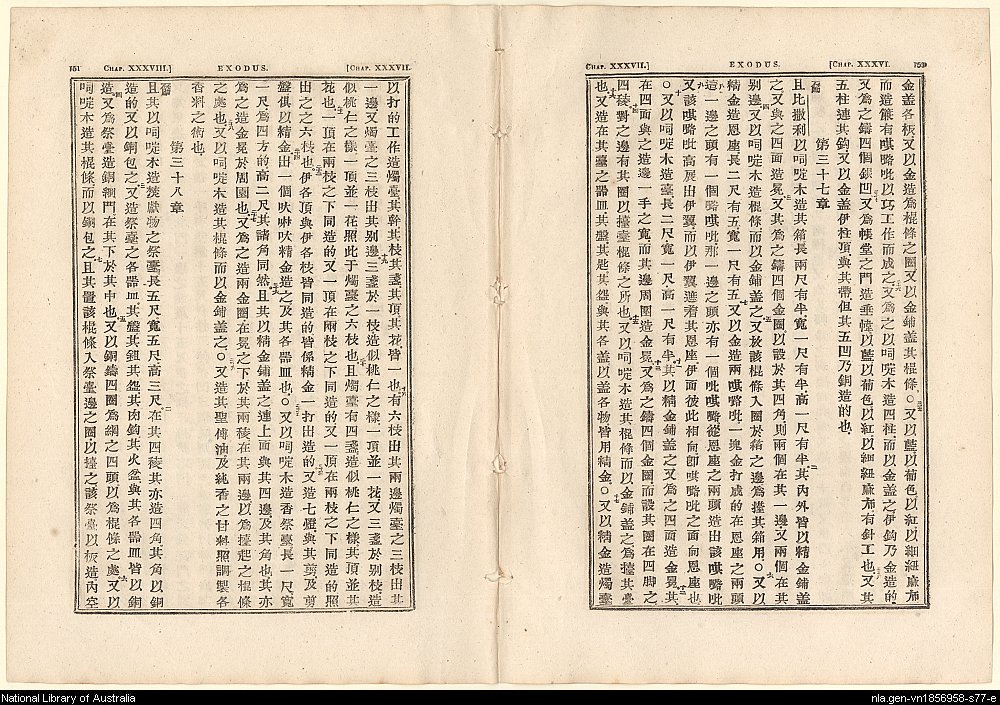 CHAP. XXXVII.]
EXODUS.
[CHAP. XXXVI.
金盖各板又以金造為棍條之圈又以金鋪盖其棍條○又以藍以葡色以紅以細紐麻布
而造簾有㗑嚧吡以巧工作而成之又為之以呞啶木造四柱而以金盖之伊鈎乃金造的
又為之鑄四個銀凹又為帳堂之門造垂幃以藍以葡色以紅以細紐麻布有針工也又其
五柱連其鈎又以金盖伊柱頂與其帶但其五凹乃銅造的也
第三十七章
且比撒利以呞啶木造其箱長兩尺有半寬一尺有半高一尺有半其內外皆以精金鋪盖
之又與之四面造冕又其為之鑄四個金圈以設於其四角則兩個在其一邊又兩個在其
别邊又以呞啶木造棍條而以金鋪盖之又於該棍條入圈於箱之邊為擡其箱用○又以
精金造恩座長二尺有五寬一尺有五又以金造兩
一塊金打成的在恩座之兩頭
這一邊之頭有一個
那一邊之頭亦有一個
從恩座之兩頭造出該
又該
高展出伊翼而以伊翼遮着其恩座伊面彼此相向卽
之面向恩座也
○又以呞啶木造臺長二尺寬一尺高一尺有半其以精金鋪盖之又為之四面造金冕
在四面與之造邊一手之寬而其邊周圍造金冕又為之鑄四個金圈而設其圈在四脚之
四稜對之邊有其圈以擡臺棍條之所也又以呞啶木造其棍條而以金鋪盖之為擡其臺
也又造在其臺之器皿其盤其匙其
與其各盖以盖各物皆用精金○又以精金造燭臺
151
CHAP. XXXVIII.]
EXODUS.
[CHAP. XXXVII.
以打的工作造燭臺其幹其枝其盞其頂其花皆一也有六枝出其兩邊燭臺之三枝出其
一邊又燭臺之三枝出其别邊三盞於一枝造似桃仁之樣一頂並一花又三盞於别枝造
似桃仁之樣一頂並一花照此于燭臺之六枝也且燭臺有四盞造似桃仁之樣其頂並其
花也一頂在兩枝之下同造的又一頂在兩枝之下同造的又一頂在兩枝之下同造的照
出之之六枝也伊各頂與伊各枝皆同造的皆係精金一打出造的又造七燈與其剪及剪
盤俱以精金出一個
精金造之及其各器皿也○又以呞啶木造香祭臺長一尺寬
一尺為四方的高二尺其諸角同然且其以精金鋪盖之連上面與其四邊及其角也其亦
為之造金冕於周圍也又為之造兩金圈在冕之下於其兩稜在其兩邊以為擡起之棍條
之處也又以呞啶木造其棍條而以金鋪盖之○又造其聖傅油及純香之甘料照調製各
香料之術也
第三十八章
且其以呞啶木造
獻物之祭臺長五尺寬五尺高三尺在其四稜其亦造四角其角以銅
造的又以銅包之又造祭臺之各器皿其盤其鈕其
其肉鈎其火盆與其各器皿皆以銅
造又為祭臺造銅網門在其下於其中也又以銅鑄四圈為網之四頭以為棍條之處又以
呞啶木造其棍條而以銅包之且其置該棍條入祭臺邊之圈以擡之該祭臺以板造內空
National Library of Australia
nla.gen-vn1856958-s77-e